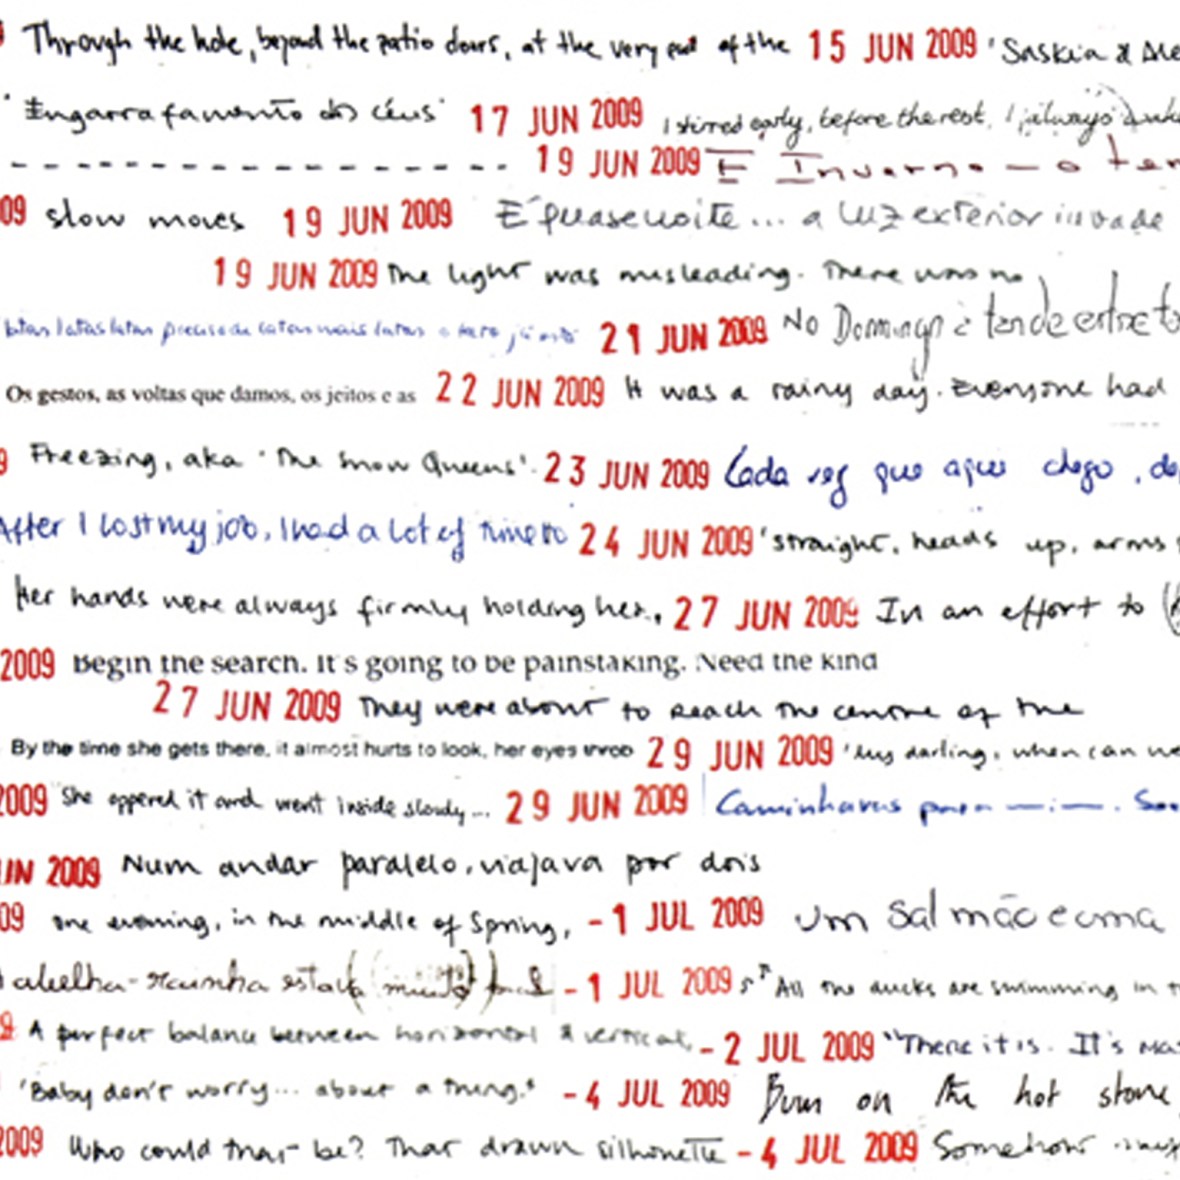 Through the hole, beyond the patio doors, at the very end of the 15 JUN 2009 'Saskia &
'Engarrafamento dos céus' 17 JUN 2009 I stirred early, before the rest, I always
- - - - - - - - - - - - - - - - - 19 JUN 2009 E Inverno — o
09 slow moves 19 JUN 2009 É quase noite... a luz exterior invade
19 JUN 2009 The light was misleading. There was no
latas latas latas preciso de latas mais latas 21 JUN 2009 No Domingo à tarde entre
Os gestos, as voltas que damos, os jeitos e as 22 JUN 2009 It was a rainy day. Everyone had
9 Freezing, aka 'The Snow Queens'. 23 JUN 2009 Cada vez que aqui chego,
After I lost my job, I had a lot of time to 24 JUN 2009 'straight, heads up, arms
Her hands were always firmly holding her, 27 JUN 2009 In an effort to
2009 Begin the search. It's going to be painstaking. Need the kind
27 JUN 2009 They were about to reach the centre of the
By the time she gets there, it almost hurts to look, her eyes 29 JUN 2009 'My darling, when can we
2009 She opened it and went inside slowly... 29 JUN 2009 Caminhavas para —·—.
UN 2009 Num andar paralelo, viajava por dois
09 One evening, in the middle of Spring, -1 JUL 2009 Um salmão e uma
abelha-rainha estava -1 JUL 2009 "All the ducks are swimming in
9 A perfect balance between horizontal & vertical, -2 JUL 2009 "There it is. It's
'Baby don't worry... about a thing.' -4 JUL 2009 Burn on the hot stone
2009 Who could that be? That drawn silhouette -4 JUL 2009 Somehow